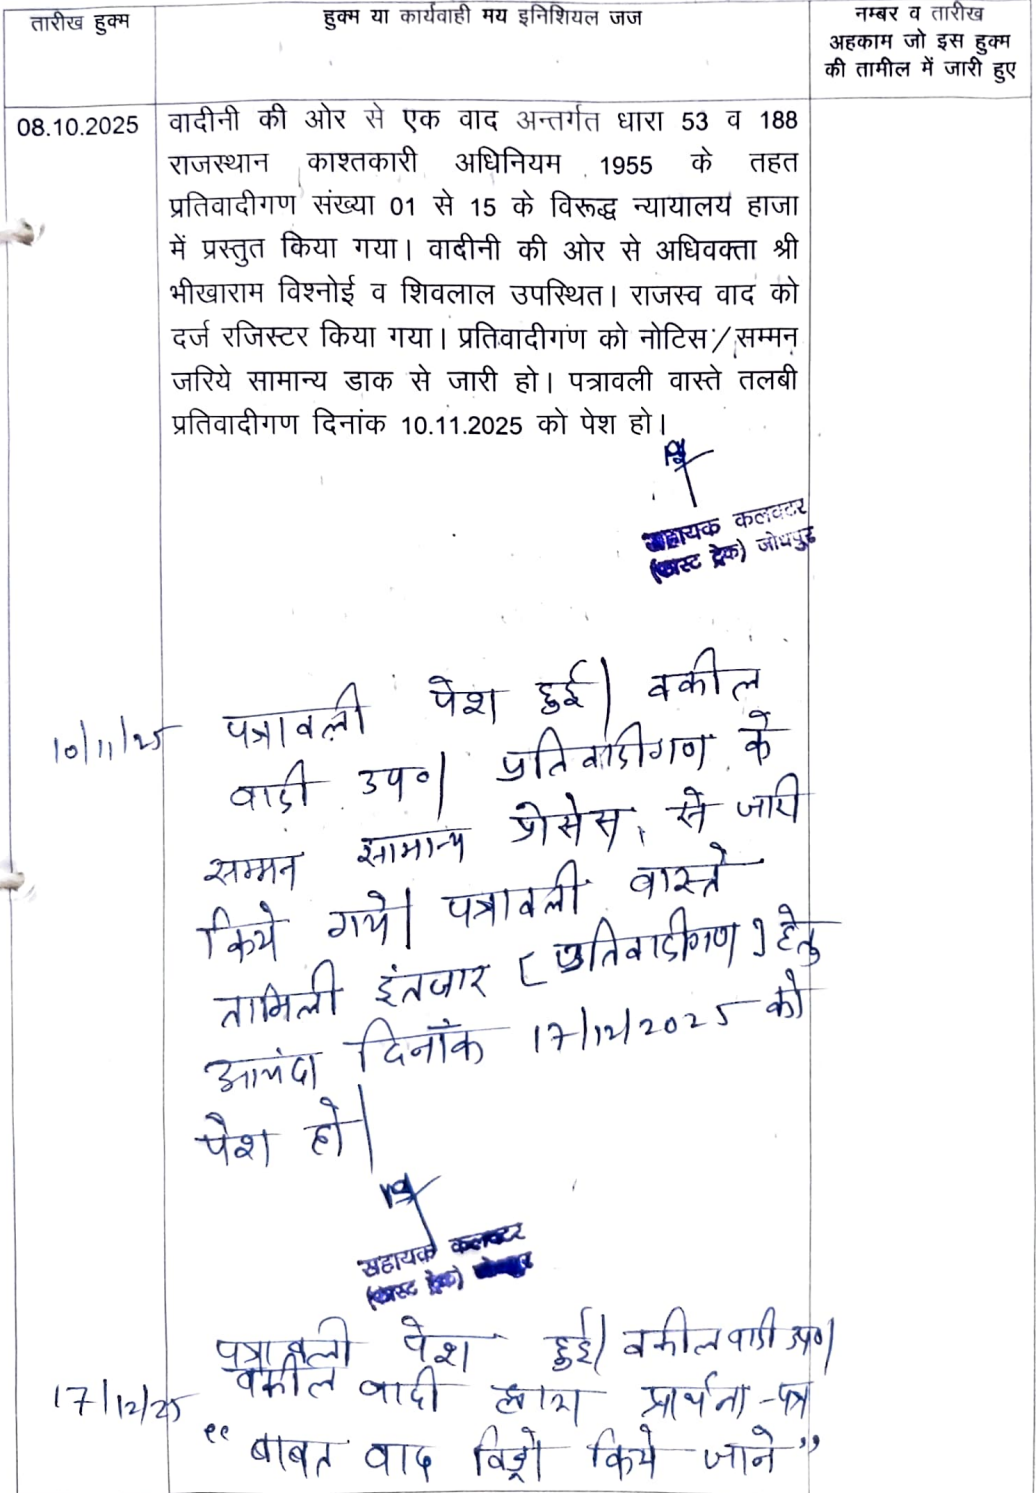 तारीख हुक्म
हुक्म या कार्यवाही मय इनिशियल जज
नम्बर व तारीख
अहकाम जो इस हुक्म
की तामील में जारी हुए
08.10.2025
वादीनी की ओर से एक वाद अन्तर्गत धारा 53 व 188
राजस्थान काश्तकारी अधिनियम 1955 के तहत
प्रतिवादीगण संख्या 01 से 15 के विरूद्ध न्यायालय हाजा
में प्रस्तुत किया गया। वादीनी की ओर से अधिवक्ता श्री
भीखाराम विश्नोई व शिवलाल उपस्थित। राजस्व वाद को
दर्ज रजिस्टर किया गया। प्रतिवादीगण को नोटिस/सम्मन
जरिये सामान्य डाक से जारी हो। पत्रावली वास्ते तलबी
प्रतिवादीगण दिनांक 10.11.2025 को पेश हो।
सहायक कलक्टर
(फास्ट ट्रेक) जोधपुर
10/11/25
पत्रावली पेश हुई। वकील
वादी उप०। प्रतिवादीगण के
सम्मन सामान्य प्रोसेस से जारी
किये गये। पत्रावली वास्ते
तामिली इंतजार [प्रतिवादीगण] हेतु
आयंदा दिनाँक 17/12/2025 को
पेश हो।
सहायक कलक्टर
(फास्ट ट्रेक)
17/12/25
पत्रावली पेश हुई। वकील वादी उप०।
वकील वादी द्वारा प्रार्थना-पत्र
“बाबत वाद विड्रो किये जाने”